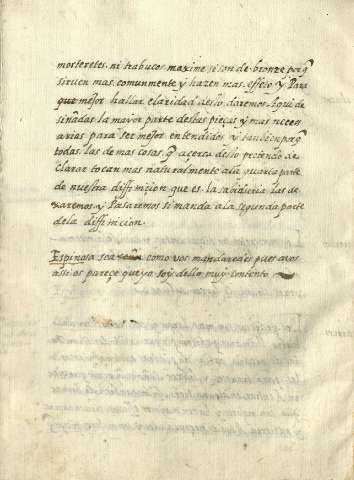 morteretes. ni trabucos maxime si son de bronze porq̃
siruen mas comunmente y hazen mas effeto y Para
que mejor hallar claridad desto daremos Aqui de
siñadas la mayor parte destas pieças y mas neces
arias para ser mejor entendidos y tambien porq̃
todas las demas cosas q̃ acerca desto pretendo de
clarar tocan mas naturalmente ala quarta parte
de nuestra diffinicion que es la sabiduria las de
xaremos y Passaremos si manda a la segunda parte
dela diffinicion.
Espinosa sea como vos mandaredes pues avos
assi os pareçe que yo soy dello muy contento